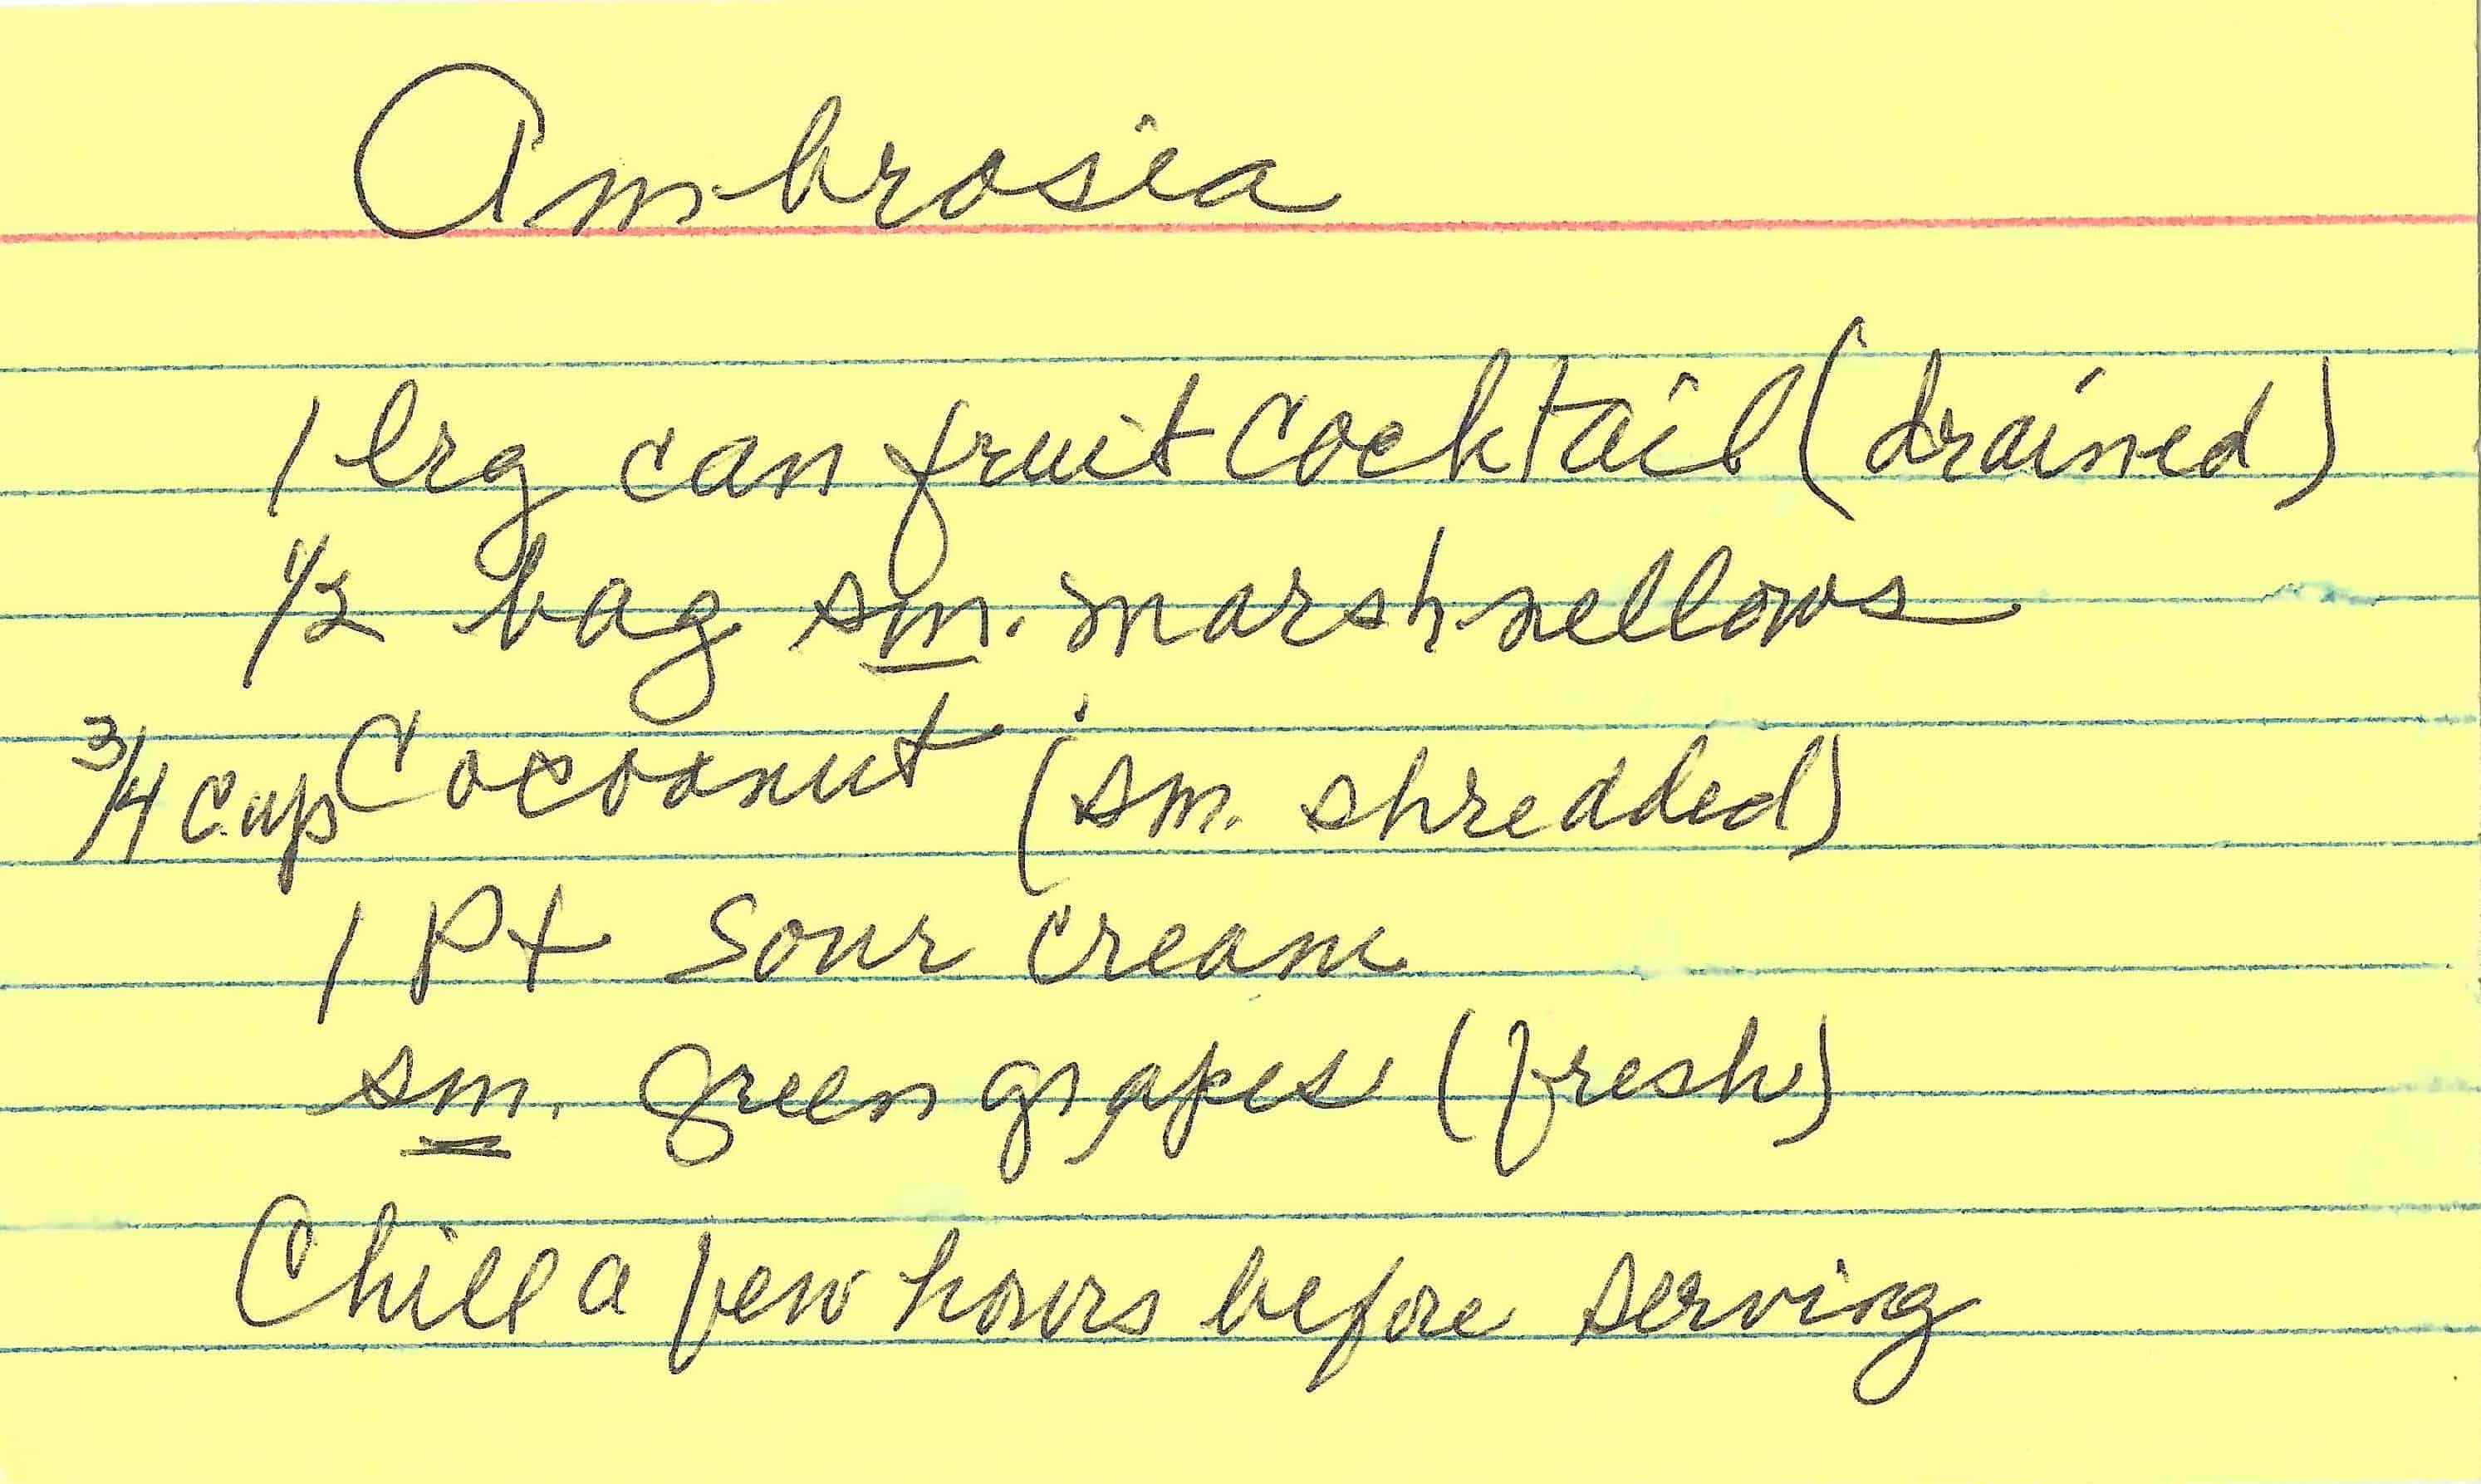 Ambrosia
1 lrg can fruit Cocktail (drained)
1/2 bag sm. marshmellows
3/4 cup Cocoanut (sm. shredded)
1 Pt Sour cream
sm. green grapes (fresh)
Chill a few hours before serving